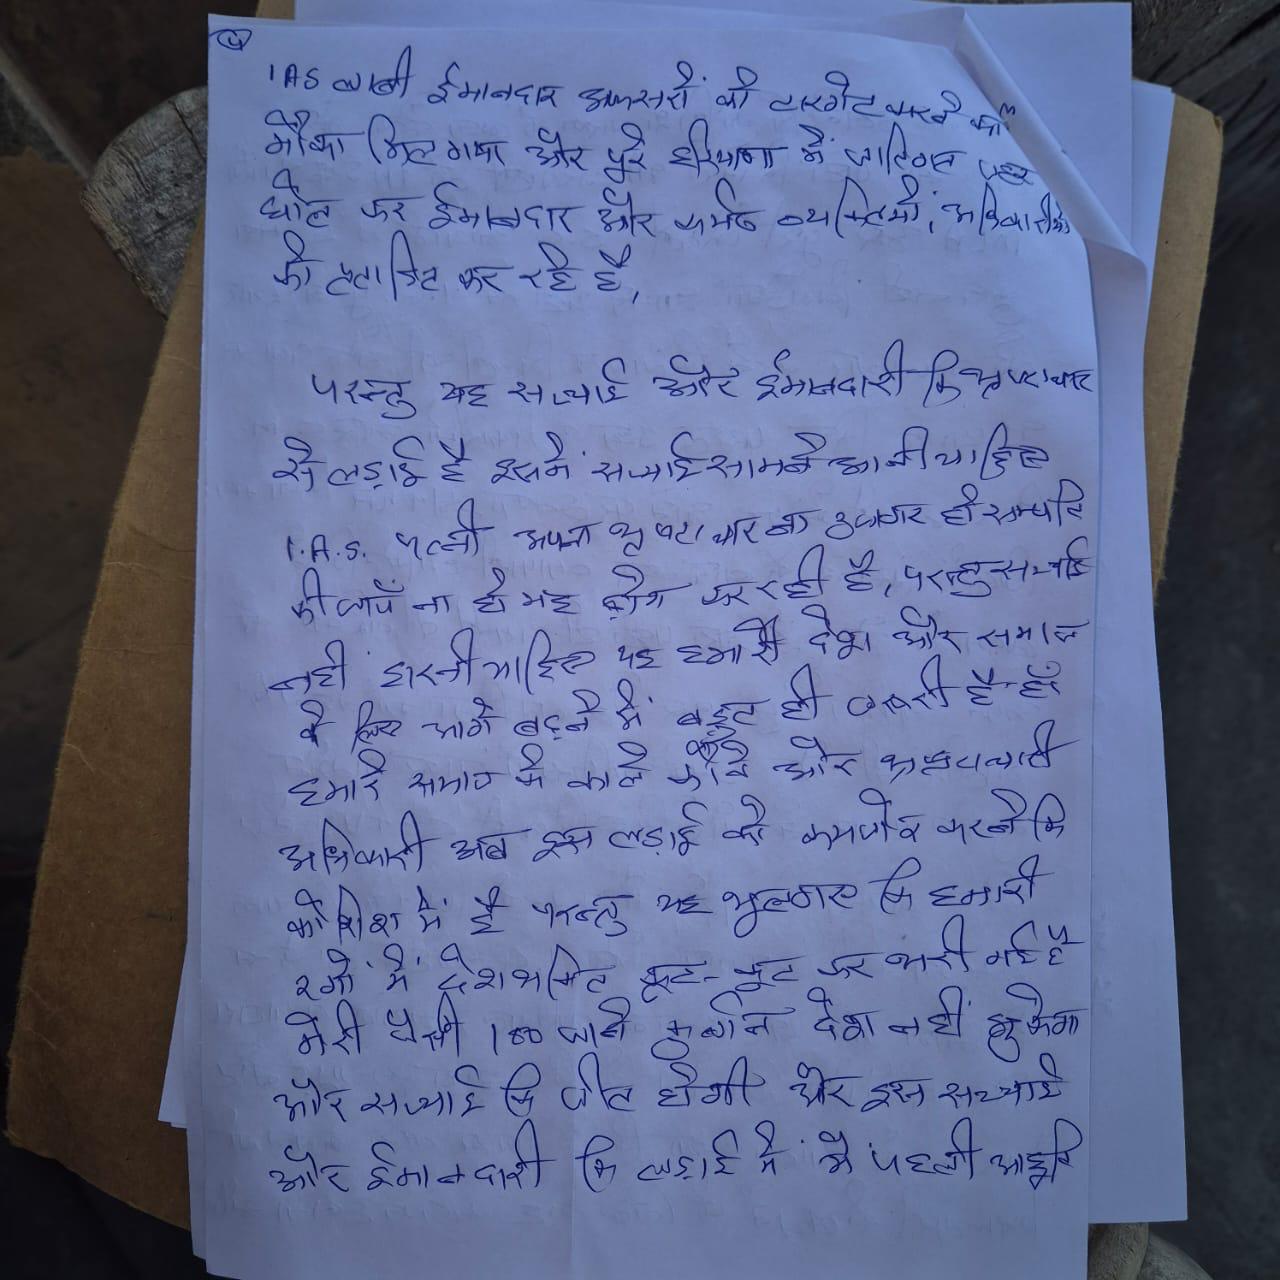 IAS लाबी ईमानदार अफसरों को टारगेट करने का
मौका मिल गया और पूरे हरियाणा में जातिगत जहर
घोल कर ईमानदार और कर्मठ व्यक्तियों, अधिकारीयो
को प्रताडित कर रहे है,
परन्तु यह सच्चाई और ईमानदारी कि भ्रष्टाचार
से लड़ाई है इसमें सच्चाई सामने आनी चाहिए
I.A.S. पत्नी अपना भ्रष्टाचार ना उजागर हो सम्पति
की जाँच ना हो यह ढोंग कर रही है, परन्तु सच्चाई
नही हारनी चाहिए यह हमारे देश और समाज
के लिए आगे बढ़ने में बहुत ही जरूरी है
हमारे समाज के काले कौवे और भ्रष्टाचारी
अधिकारी अब इस लड़ाई को कमजोर करने कि
कोशिश में है परन्तु यह भुलगए कि हमारी
रगों में देशभक्ति कूट-कूट कर भरी गई है
मेरी जैसी 100 जाने कुर्बान देश नहीं झुकेगा
और सच्चाई कि जीत होगी और इस सच्चाई
और ईमानदारी कि लड़ाई में मैं पहली आहुति